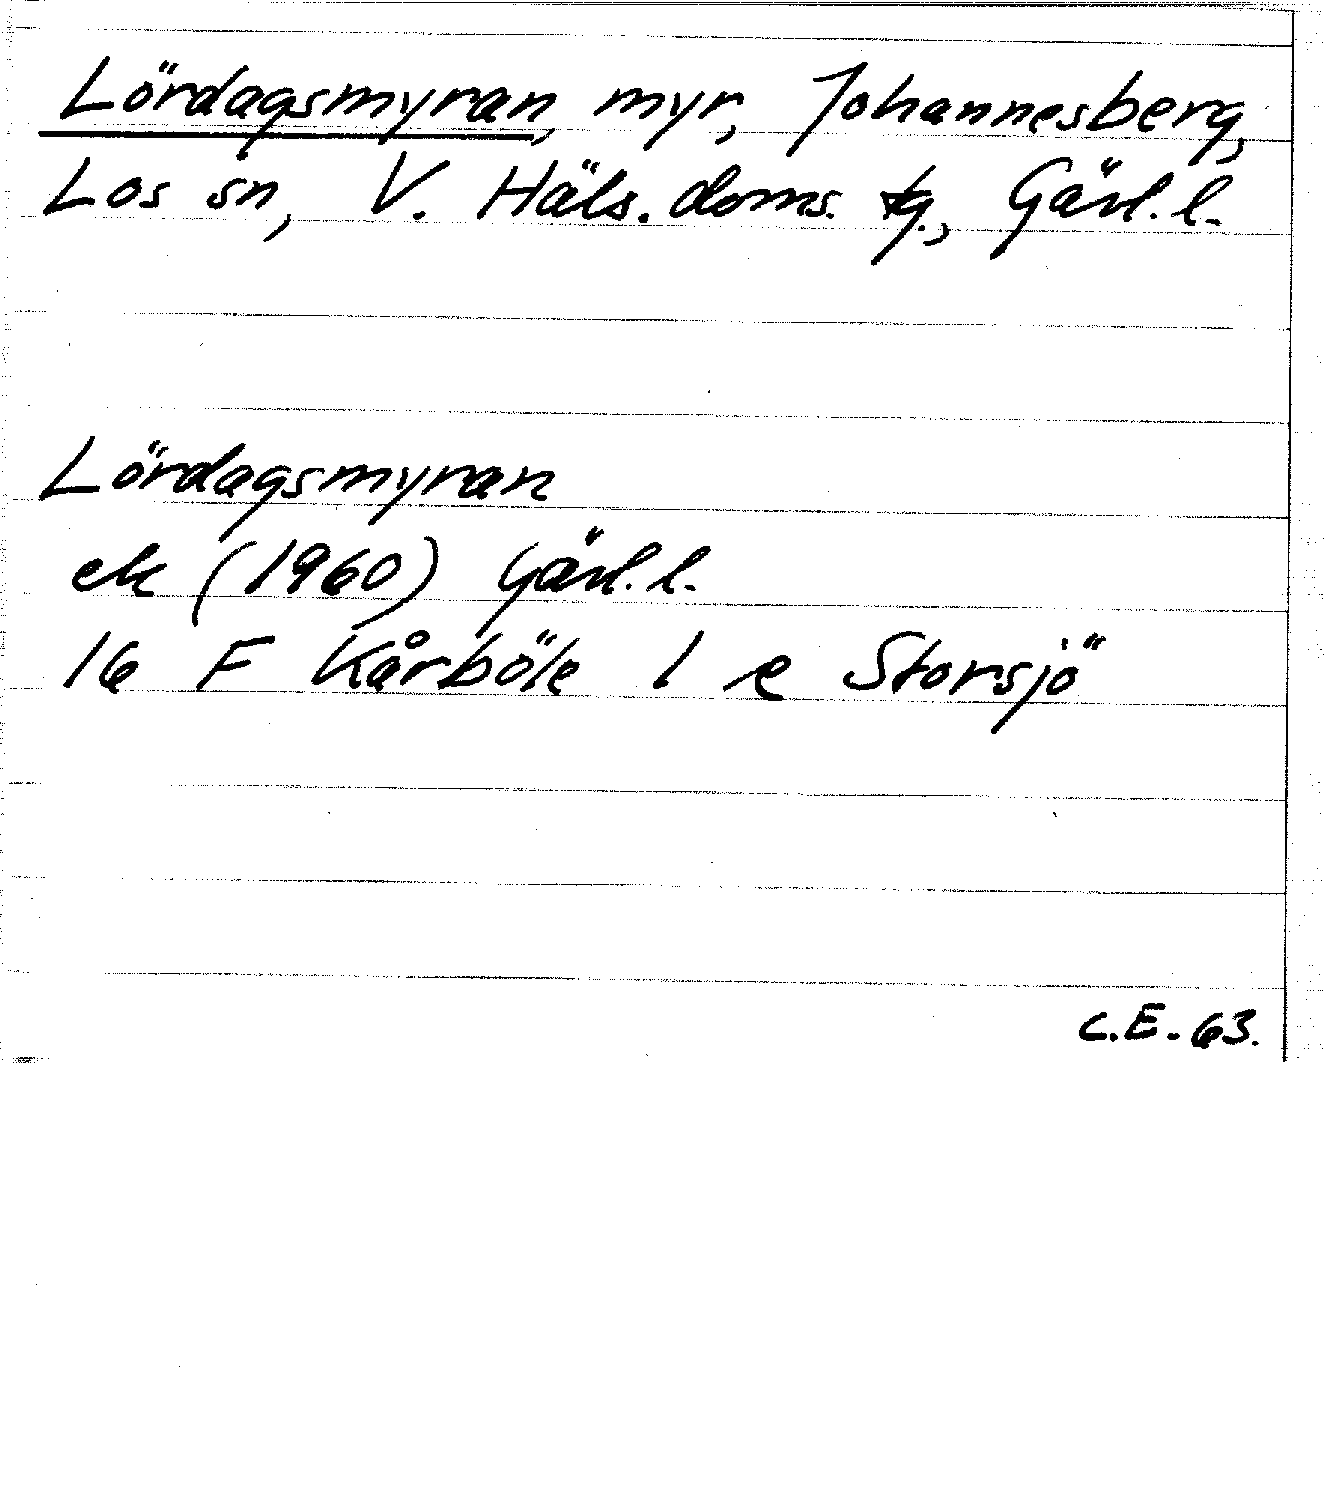 Lördagsmyran, myr, Johannesberg,
Los sn, V. Häls. doms. tg., Gävl. l.
Lördagsmyran
ek (1960) Gävl. l.
16 F Kårböle 1 e Storsjö
C.E. 63.